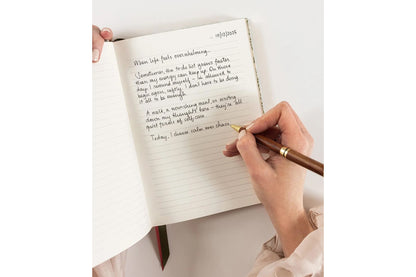 10/12/2025
When life feels overwhelming...
Sometimes, the to-do list grows faster
than my energy can keep up. On those
days I remind myself – I'm allowed to
begin again, softly. I don't have to be doing
it all to be enough.
A walk, a nourishing meal, or writing
down my thoughts here – they're all
quiet forms of self-care.
Today, I choose calm over chaos.